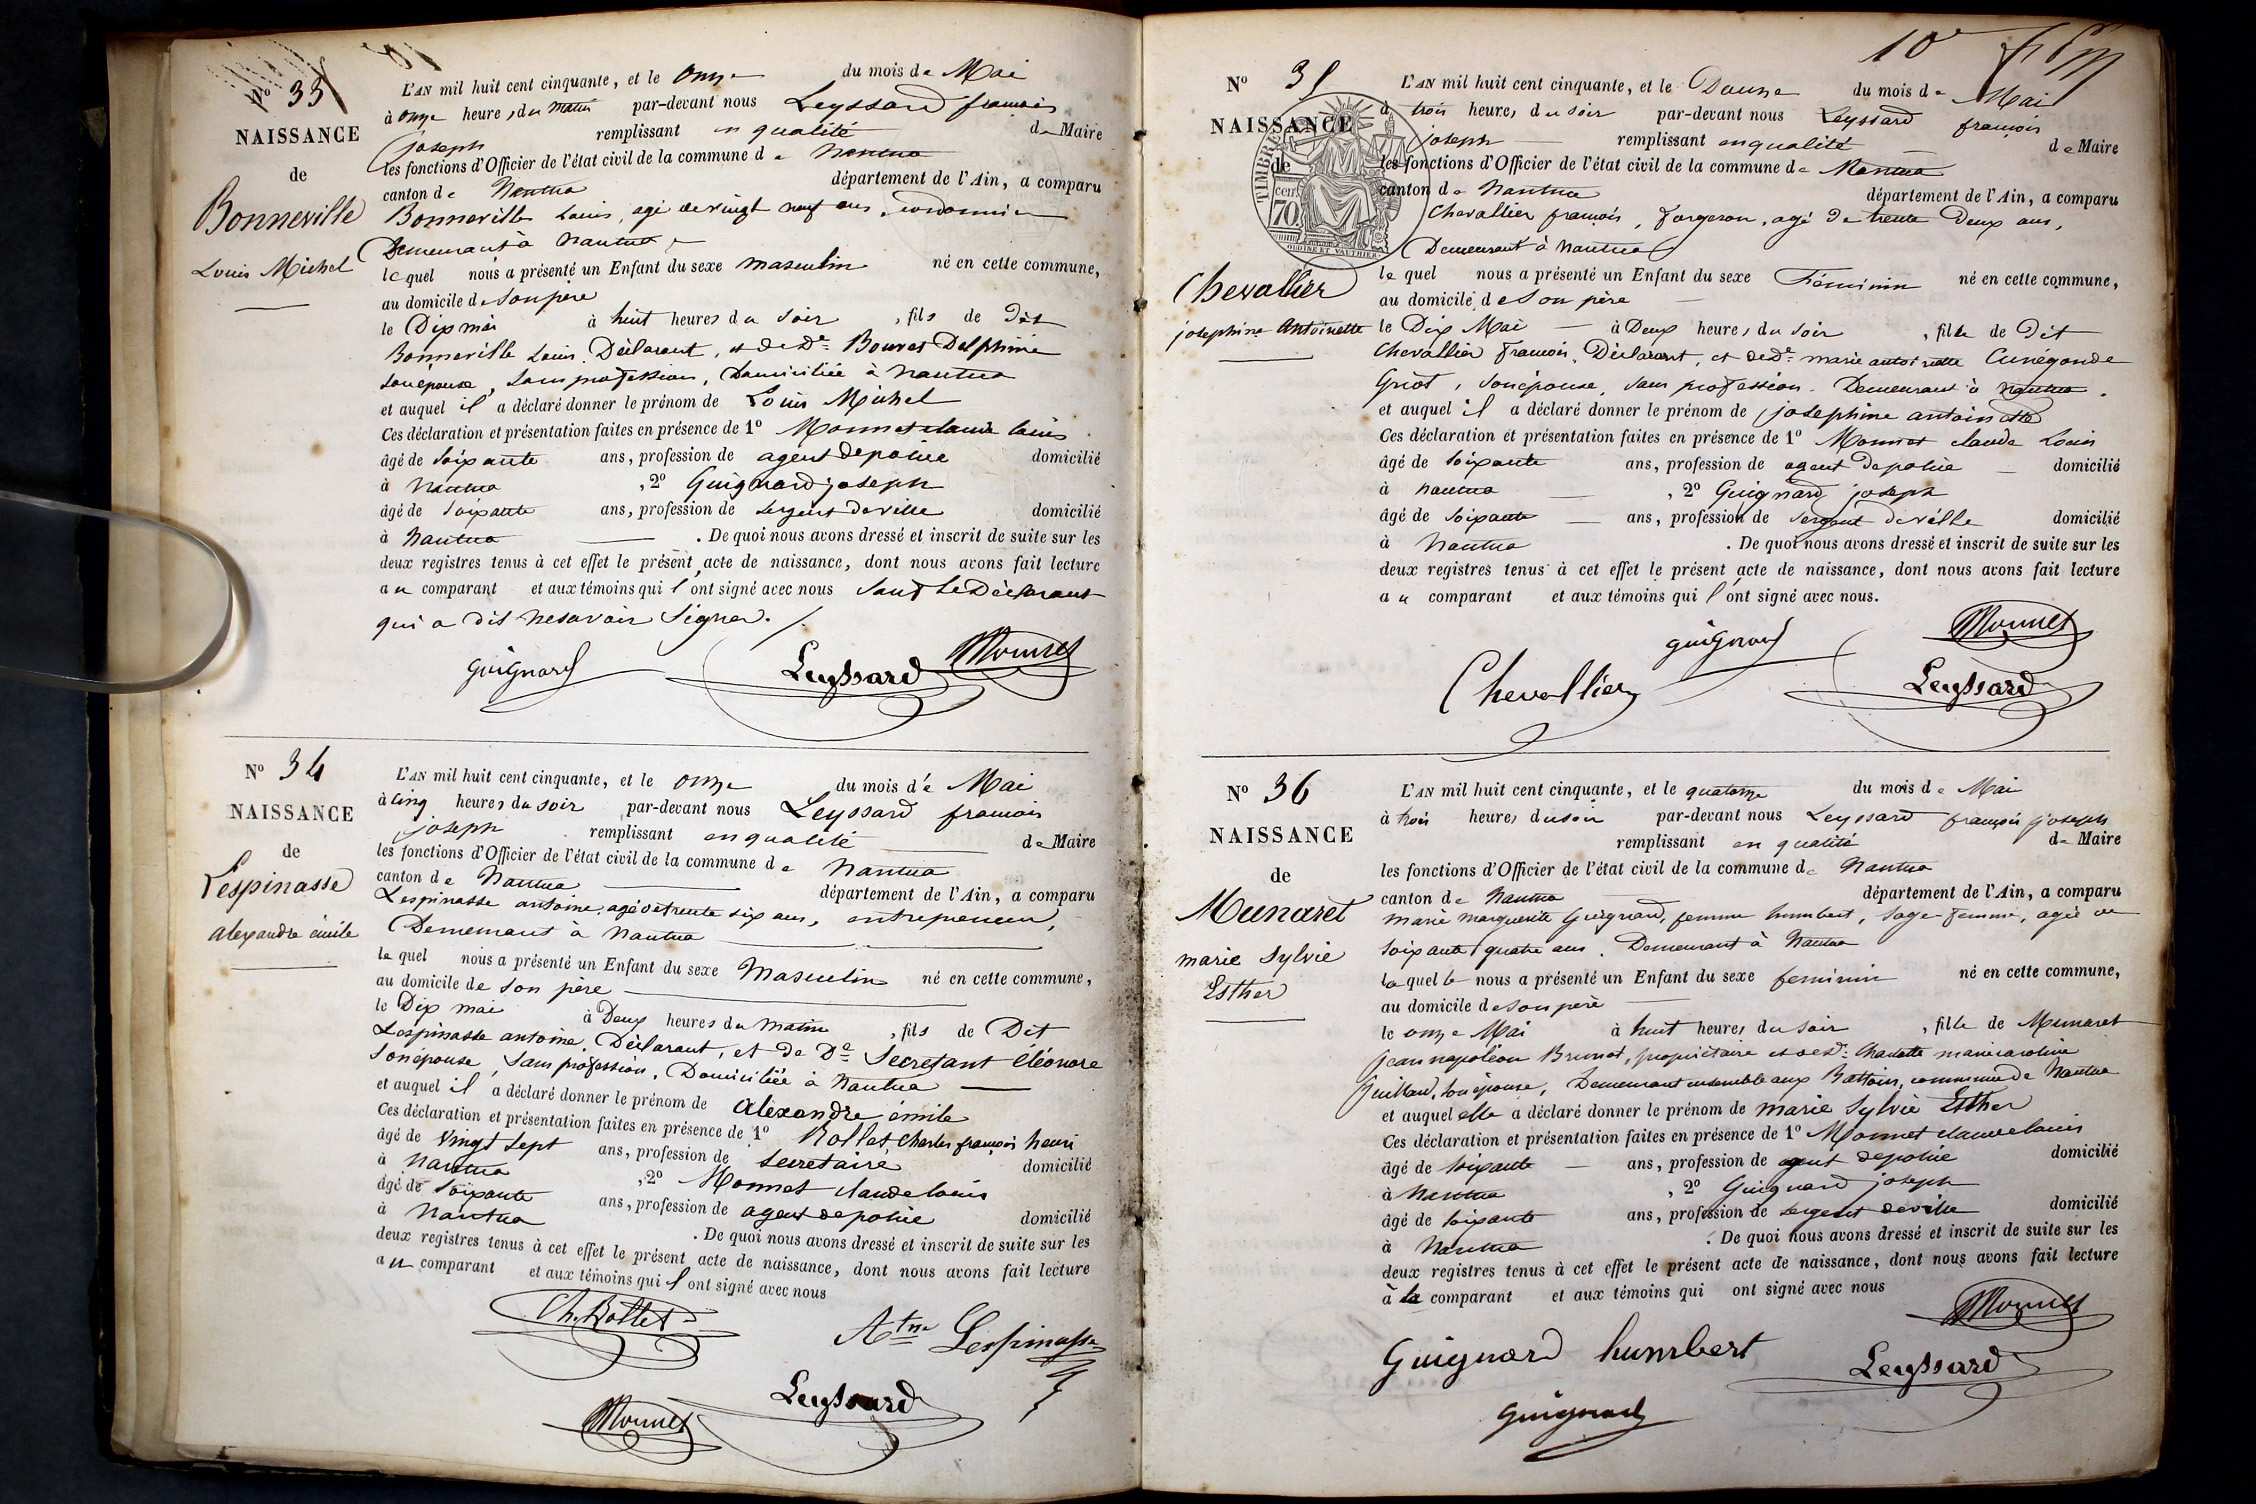 N° 33
NAISSANCE
de
Bonneville
Louis Michel
L'AN mil huit cent cinquante, et le onze du mois de Mai
à onze heures du matin par-devant nous Leyssard françois
joseph remplissant en qualité de Maire
les fonctions d'Officier de l'état civil de la commune de Nantua
canton de Nantua département de l'Ain, a comparu
Bonneville Louis, agé de vingt neuf ans, cordonnier
Demeurant à Nantua
lequel nous a présenté un Enfant du sexe masculin né en cette commune,
au domicile de son père
le Dix mai à huit heures du soir, fils de Dit
Bonneville Louis Déclarant, et de De Bouvet Delphine
son épouse, sans profession, Domiciliée à Nantua
et auquel il a déclaré donner le prénom de Louis Michel
Ces déclaration et présentation faites en présence de 1° Monnet claude louis
âgé de soixante ans, profession de agent de police domicilié
à Nantua, 2° Guignard joseph
âgé de soixante ans, profession de sergent de ville domicilié
à Nantua. De quoi nous avons dressé et inscrit de suite sur les
deux registres tenus à cet effet le présent acte de naissance, dont nous avons fait lecture
au comparant et aux témoins qui l'ont signé avec nous sauf le Déclarant
qui a dit ne savoir signer.
guignard Leyssard Monnet
N° 34
NAISSANCE
de
Lespinasse
alexandre émile
L'AN mil huit cent cinquante, et le onze du mois de Mai
à cinq heures du soir par-devant nous Leyssard françois
joseph remplissant en qualité de Maire
les fonctions d'Officier de l'état civil de la commune de Nantua
canton de Nantua département de l'Ain, a comparu
Lespinasse antoine, agé de trente six ans, entrepreneur,
Demeurant à Nantua
lequel nous a présenté un Enfant du sexe Masculin né en cette commune,
au domicile de son père
le Dix mai à Deux heures du matin, fils de Dit
Lespinasse antoine, Déclarant, et de De Secretant Éléonore
son épouse, sans profession, Domiciliée à Nantua
et auquel il a déclaré donner le prénom de alexandre émile
Ces déclaration et présentation faites en présence de 1° Rollet, Charles françois henri
âgé de vingt sept ans, profession de secretaire domicilié
à Nantua, 2° Monnet claude louis
âgé de soixante ans, profession de agent de police domicilié
à Nantua. De quoi nous avons dressé et inscrit de suite sur les
deux registres tenus à cet effet le présent acte de naissance, dont nous avons fait lecture
au comparant et aux témoins qui l'ont signé avec nous
Ch. Rollet Atne Lespinasse
Leyssard
Monnet
10e
N° 35
NAISSANCE
de
Chevallier
josephine Antoinette
TIMBRE
cent
70
OUDINÉ ET VAUTHIER
L'AN mil huit cent cinquante, et le Douze du mois de Mai
à trois heures du soir par-devant nous Leyssard françois
joseph remplissant en qualité de Maire
les fonctions d'Officier de l'état civil de la commune de Nantua
canton de Nantua département de l'Ain, a comparu
Chevallier françois, forgeron, agé de trente Deux ans,
Demeurant à Nantua
lequel nous a présenté un Enfant du sexe Féminin né en cette commune,
au domicile de son père
le Dix Mai à Deux heures du soir, fille de Dit
Chevallier françois, Déclarant, et de De marie antoinette Cunégonde
Griot, son épouse, sans profession. Demeurant à Nantua.
et auquel il a déclaré donner le prénom de josephine antoinette
Ces déclaration et présentation faites en présence de 1° Monnet claude Louis
âgé de soixante ans, profession de agent de police domicilié
à Nantua, 2° Guignard joseph
âgé de soixante ans, profession de sergent de ville domicilié
à Nantua. De quoi nous avons dressé et inscrit de suite sur les
deux registres tenus à cet effet le présent acte de naissance, dont nous avons fait lecture
au comparant et aux témoins qui l'ont signé avec nous.
guignard Monnet
Chevallier Leyssard
N° 36
NAISSANCE
de
Munaret
marie Sylvie
Esther
L'AN mil huit cent cinquante, et le quatorze du mois de Mai
à trois heures du soir par-devant nous Leyssard françois joseph
remplissant en qualité de Maire
les fonctions d'Officier de l'état civil de la commune de Nantua
canton de Nantua département de l'Ain, a comparu
Marie Marguerite Guignard, femme humbert, sage femme, agée de
soixante quatre ans. Demeurant à Nantua
laquelle nous a présenté un Enfant du sexe feminin né en cette commune,
au domicile de son père
le onze Mai à huit heures du soir, fille de Munaret
jean napoléon Brunot, propriétaire et de De Charlotte marie caroline
Juillard, son épouse, Demeurant ensemble aux Battoirs, commune de Nantua
et auquel elle a déclaré donner le prénom de marie Sylvie Esther
Ces déclaration et présentation faites en présence de 1° Monnet claude louis
âgé de soixante ans, profession de agent de police domicilié
à Nantua, 2° Guignard joseph
âgé de soixante ans, profession de sergent de ville domicilié
à Nantua. De quoi nous avons dressé et inscrit de suite sur les
deux registres tenus à cet effet le présent acte de naissance, dont nous avons fait lecture
à la comparant et aux témoins qui ont signé avec nous
Monnet
Guignard humbert Leyssard
guignard